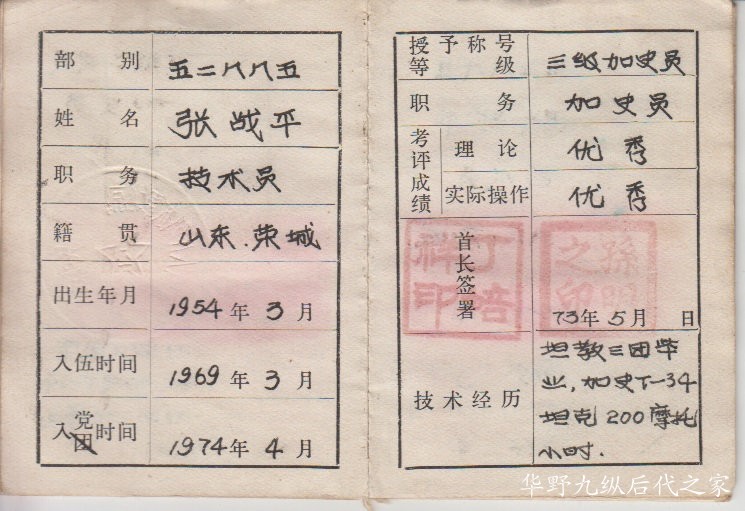 部别 五二八八五
姓名 张战平
职务 技术员
籍贯 山东.荣城
出生年月 1954年3月
入伍时间 1969年3月
入党团时间 1974年4月
授予称号等级 三级加史员
职务 加史员
考评成绩 理论 优秀
实际操作 优秀
首长签署 丁培科印 孙之印
73年5月 日
技术经历 坦教三团毕
业,加史T-34
坦克200摩托
小时.
华野九纵后代之家